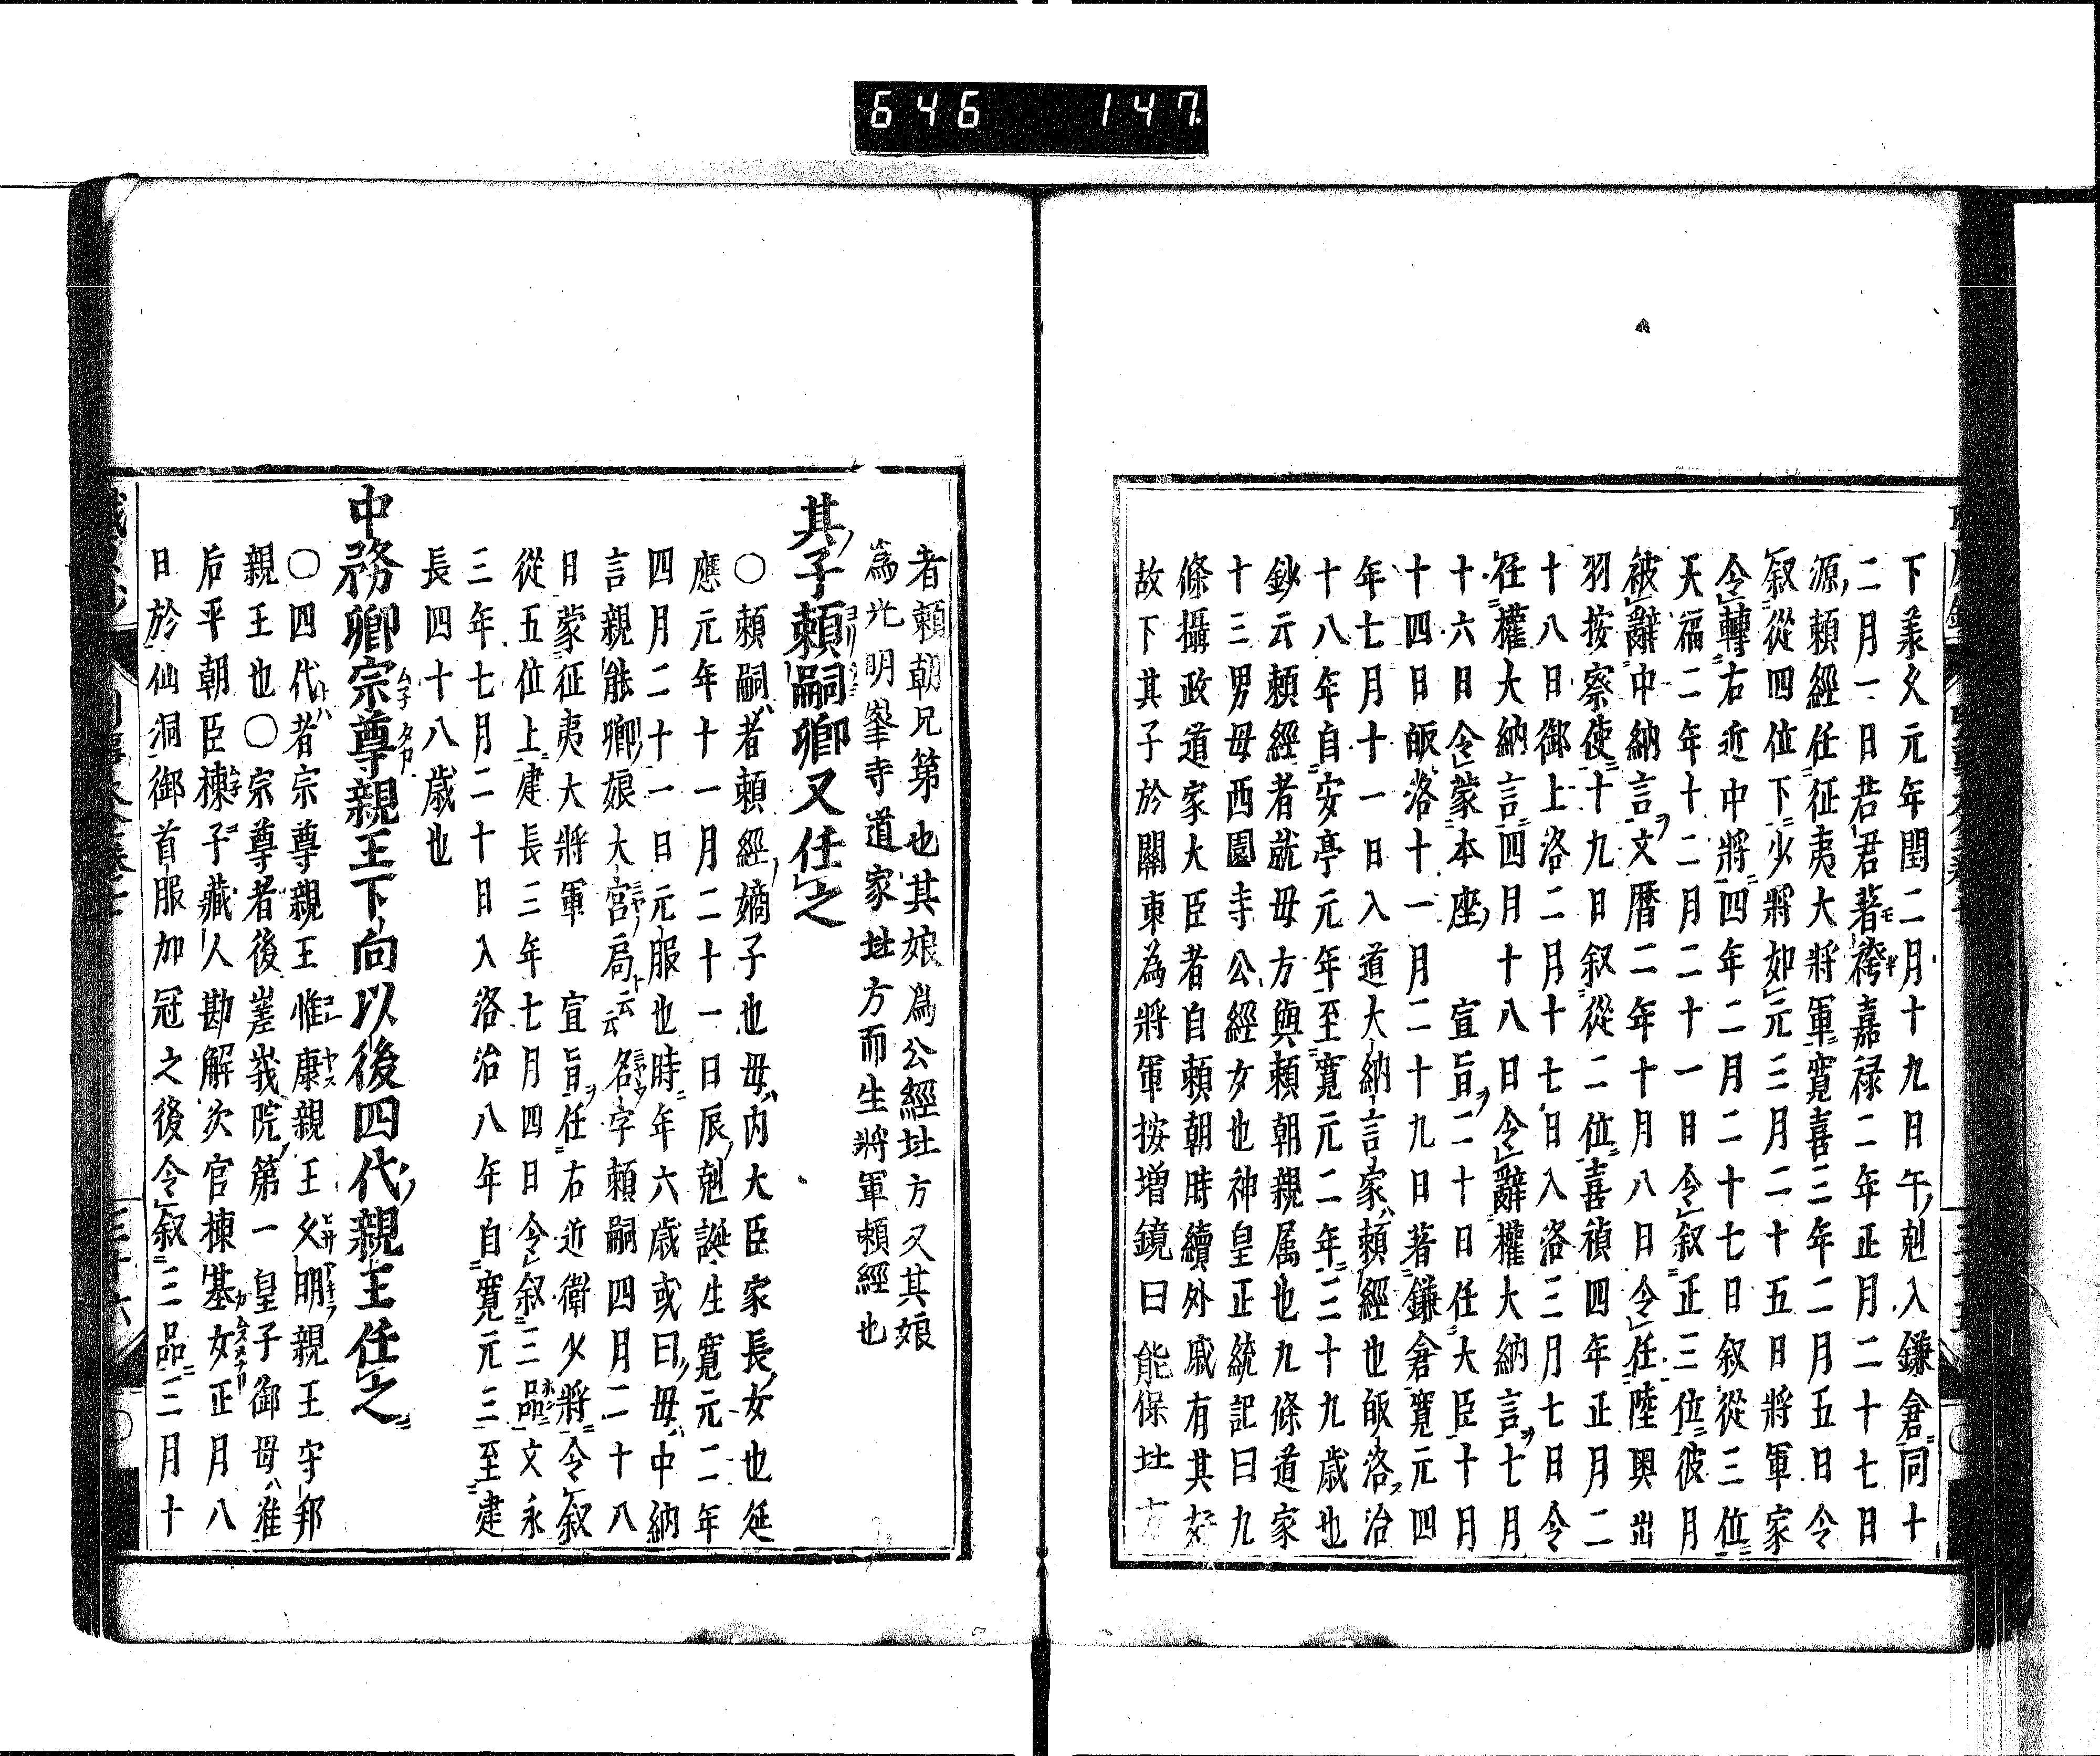 646 147.
下美久元年閏二月十九日午剋入鎌倉同十
二月一日若君著袴嘉禄二年正月二十七日
源頼經任征夷大將軍寛喜三年二月五日令
叙從四位下少將如元三月二十五日將軍家
令轉右近中將四年二月二十七日叙從三位
天福二年十二月二十一日令叙正三位彼月
被辭中納言文暦二年十月八日令任陸奥出
羽按察使十九日叙從二位嘉禎四年正月二
十八日御上洛二月十七日入洛三月七日令
任權大納言四月十八日令辭權大納言七月
十六日令蒙本座宣旨二十日任大臣十月
十四日皈洛十一月二十九日著鎌倉寛元四
年七月十一日入道大納言家頼經也皈洛治
十八年自安亭元年至寛元二年三十九歳也
鈔云頼經者就母方與頼朝親属也九條道家
十三男母西園寺公經女也神皇正統記曰九
條攝政道家大臣者自頼朝時續外戚有其好
故下其子於關東為將軍按増鏡曰能保北方
者頼朝兄第也其娘爲公經北方又其娘
爲光明峯寺道家北方而生將軍頼經也
其子頼嗣卿又任之
○頼嗣者頼經嫡子也母内大臣家長女也延
應元年十一月二十一日辰剋誕生寛元二年
四月二十一日元服也時年六歳或曰母中納
言親能卿娘大宮局云云名字頼嗣四月二十八
日蒙征夷大將軍宣旨任右近衛少將令叙
從五位上建長三年七月四日令叙三品文永
三年七月二十日入洛治八年自寛元三至建
長四十八歳也
中務卿宗尊親王下向以後四代親王任之
○四代者宗尊親王惟康親王久明親王守邦
親王也○宗尊者後嵯峩院第一皇子御母准
后平朝臣棟子藏人勘解次官棟基女正月八
日於仙洞御首服加冠之後令叙三品三月十